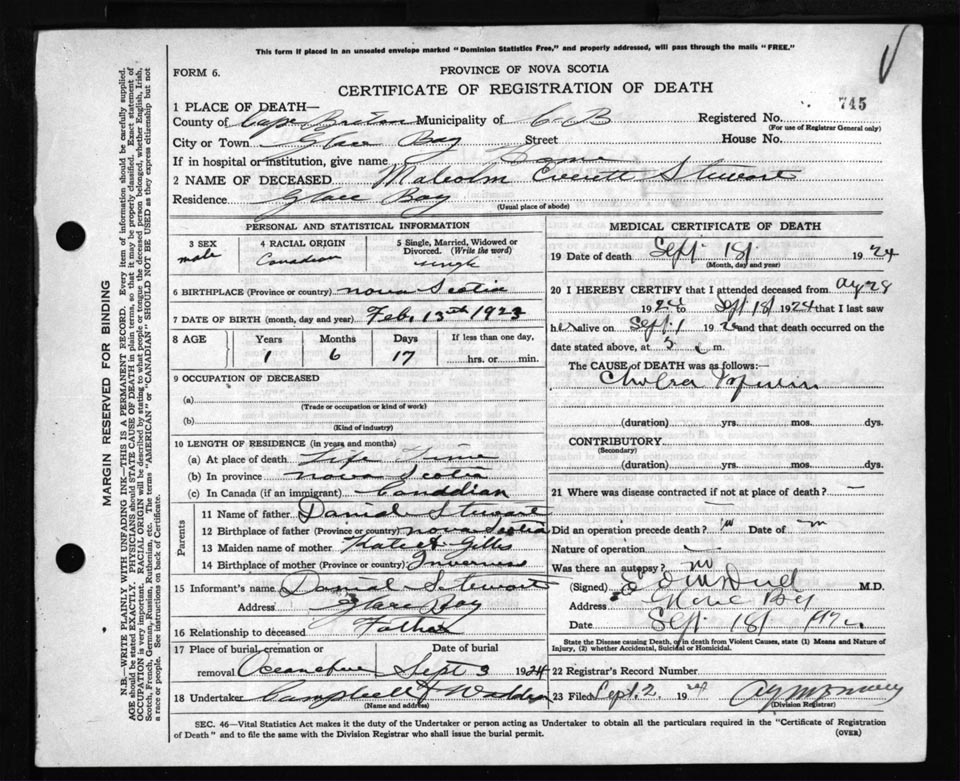 This form if placed in an unsealed envelope marked "Dominion Statistics Free," and properly addressed, will pass through the mails "FREE."
FORM 6.
PROVINCE OF NOVA SCOTIA
CERTIFICATE OF REGISTRATION OF DEATH
745
1 PLACE OF DEATH—
County of Cape Breton Municipality of C B Registered No.
(For use of Registrar General only)
City or Town Glace Bay Street House No.
If in hospital or institution, give name Home
2 NAME OF DECEASED Malcolm Everett Stewart
Residence Glace Bay
(Usual place of abode)
PERSONAL AND STATISTICAL INFORMATION
3 SEX male
4 RACIAL ORIGIN Canadian
5 Single, Married, Widowed or Divorced. (Write the word) single
6 BIRTHPLACE (Province or country) nova Scotia
7 DATE OF BIRTH (month, day and year) Feb. 13th 1923
8 AGE Years Months Days If less than one day,
1 6 17 hrs. or min.
9 OCCUPATION OF DECEASED
(a)
(Trade or occupation or kind of work)
(b)
(Kind of industry)
10 LENGTH OF RESIDENCE (in years and months)
(a) At place of death Life Time
(b) In province nova Scotia
(c) In Canada (if an immigrant) Canddian
Parents
11 Name of father Daniel Stewart
12 Birthplace of father (Province or country) nova Scotia
13 Maiden name of mother Gillis
14 Birthplace of mother (Province or country) Inverness
15 Informant's name Daniel Stewart
Address Glace Bay
16 Relationship to deceased Father
17 Place of burial, cremation or removal Date of burial
Sept 3 1924
18 Undertaker Campbell
(Name and address)
MEDICAL CERTIFICATE OF DEATH
19 Date of death Sept. 1924
(Month, day and year)
20 I HEREBY CERTIFY that I attended deceased from Aug 28
1924 to Sept 1924 that I last saw
h alive on Sept. 1 192 and that death occurred on
date stated above, at 3 m.
The CAUSE OF DEATH was as follows:—
Cholera
(duration) yrs. mos. dys.
CONTRIBUTORY
(Secondary)
(duration) yrs. mos. dys.
21 Where was disease contracted if not at place of death?
Did an operation precede death? Date of
Nature of operation
Was there an autopsy? no
(Signed) M.D.
Address Glace Bay
Date Sept. 192
State the Disease causing Death, or in death from Violent Causes, state (1) Means and Nature of Injury, (2) whether Accidental, Suicidal or Homicidal.
22 Registrar's Record Number
23 Filed Sept. 2, 19
(Division Registrar)
SEC. 46—Vital Statistics Act makes it the duty of the Undertaker or person acting as Undertaker to obtain all the particulars required in the "Certificate of Registration
of Death" and to file the same with the Division Registrar who shall issue the burial permit.
(OVER)
MARGIN RESERVED FOR BINDING
N.B.—WRITE PLAINLY WITH UNFADING INK—THIS IS A PERMANENT RECORD. Every item of information should be carefully supplied.
AGE should be stated EXACTLY. PHYSICIANS should STATE CAUSE OF DEATH in plain terms, so that it may be properly classified. Exact statement of
OCCUPATION is very important. RACIAL ORIGIN will be described by stating to what people or tongue the deceased person belonged, whether English, Irish,
Scotch, French, German, Russian, Ruthenian, etc. The terms "AMERICAN" or "CANADIAN" SHOULD NOT BE USED as they express citizenship but not
a race or people. See instructions on back of Certificate.